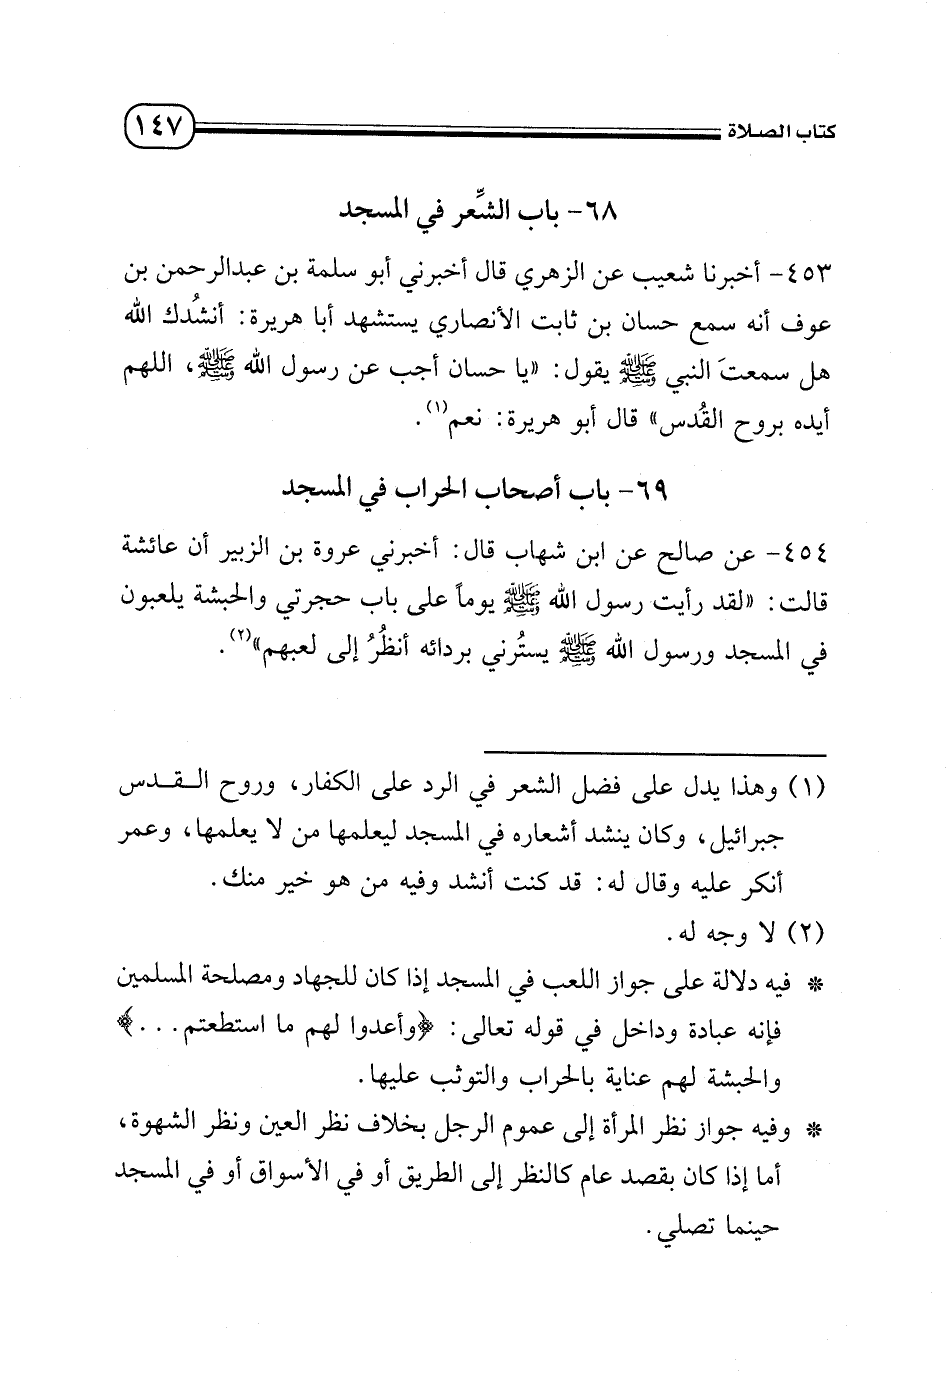 كتاب الصلاة
١٤٧
٦٨- باب الشِّعر في المسجد
٤٥٣- أخبرنا شعيب عن الزهري قال أخبرني أبو سلمة بن عبدالرحمن بن
عوف أنه سمع حسان بن ثابت الأنصاري يستشهد أبا هريرة: أنشُدك الله
هل سمعتَ النبي ﷺ يقول: «يا حسان أجب عن رسول الله ﷺ، اللهم
أيده بروح القُدس» قال أبو هريرة: نعم(١).
٦٩- باب أصحاب الحراب في المسجد
٤٥٤- عن صالح عن ابن شهاب قال: أخبرني عروة بن الزبير أن عائشة
قالت: «لقد رأيت رسول الله ﷺ يوماً على باب حجرتي والحبشة يلعبون
في المسجد ورسول الله ﷺ يستُرني بردائه أنظُرُ إلى لعبهم»(٢).
(١) وهذا يدل على فضل الشعر في الرد على الكفار، وروح القدس
جبرائيل، وكان ينشد أشعاره في المسجد ليعلمها من لا يعلمها، وعمر
أنكر عليه وقال له: قد كنت أنشد وفيه من هو خير منك.
(٢) لا وجه له.
* فيه دلالة على جواز اللعب في المسجد إذا كان للجهاد ومصلحة المسلمين
فإنه عبادة وداخل في قوله تعالى: ﴿وأعدوا لهم ما استطعتم...﴾
والحبشة لهم عناية بالحراب والتوثب عليها.
* وفيه جواز نظر المرأة إلى عموم الرجل بخلاف نظر العين ونظر الشهوة،
أما إذا كان بقصد عام كالنظر إلى الطريق أو في الأسواق أو في المسجد
حينما تصلي.